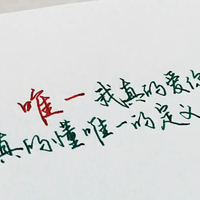 唯一 我真的爱你
真的懂唯一的定义